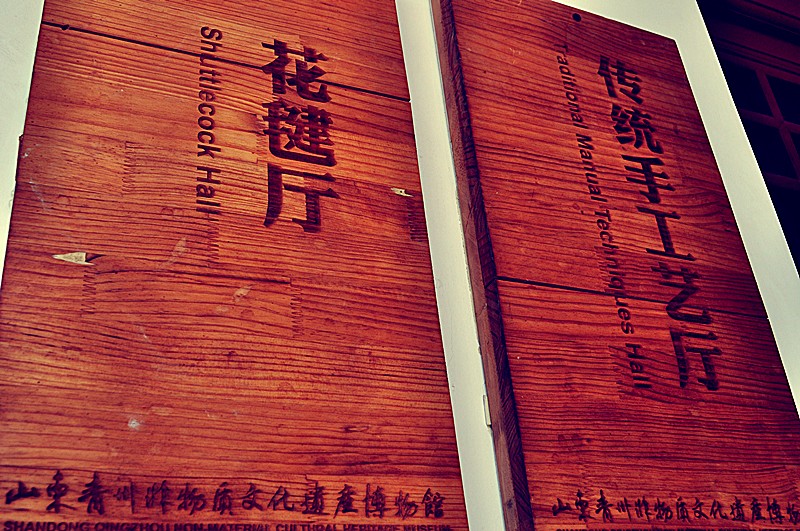 花毽厅
Shuttlecock Hall
山东青州非物质文化遗产博物館
SHANDONG QINGZHOU NON-MATERIAL CULTURAL HERITAGE MUSEUM
传统手工艺厅
Traditional Manual Techniques Hall
山东青州非物质文化遗产博物